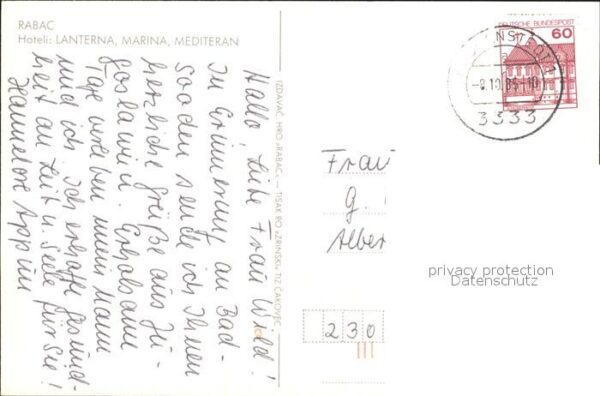 RABAC
Hoteli: LANTERNA, MARINA, MEDITERAN
Hallo, liebe Frau Wild!
In Erinnerung an Bad-
sooden sende ich Ihnen
herzliche Grüße aus Ju-
goslawien. Erholsame
Tage verleben mein Mann
und ich. Ich erhoffe Gesund-
heit an Leib u. Seele für Sie!
Hannelore
IZDAVAČ: "RABAC" — TISAK RO »ZRINSKI« TIZ ČAKOVEC
DEUTSCHE BUNDESPOST
60
-8.10.85-10
3533
Frau
G.
Alber
privacy protection
Datenschutz
230